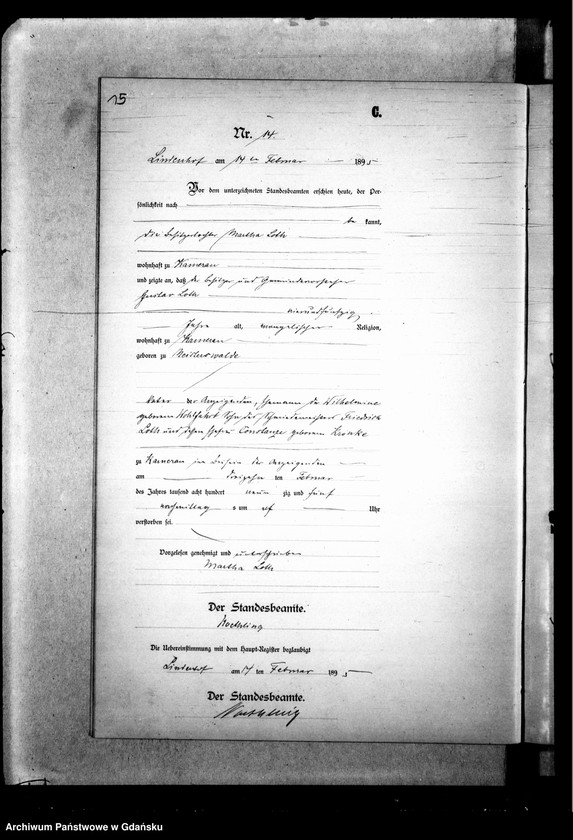 15
C.
Nr. 14.
Lindenhof am 14 ten Februar 1895
Vor dem unterzeichneten Standesbeamten erschien heute, der Per-
sönlichkeit nach
be kannt,
die Besitzertochter Martha Loth
wohnhaft zu Kameran
und zeigte an, daß der Besitzer und Gemeindevorsteher
Gustav Loth
vierundfünfzig
Jahre alt, evangelischer Religion,
wohnhaft zu Kameran
geboren zu
Vater der Anzeigenden, Ehemann der Wilhelmine
geborenen Wohlfahrt Sohn des Schmiedemeisters Friedrich
Loth und dessen Ehefrau Constanze geborenen
zu Kameran im Beisein der Anzeigenden
am dreizehn ten Februar
des Jahres tausend acht hundert neun zig und fünf
nachmittag s um elf Uhr
verstorben sei.
Vorgelesen genehmigt und unterschrieben
Martha Loth
Der Standesbeamte.
Die Uebereinstimmung mit dem Haupt-Register beglaubigt
Lindenhof am 14 ten Februar 1895
Der Standesbeamte.
Archiwum Państwowe w Gdańsku